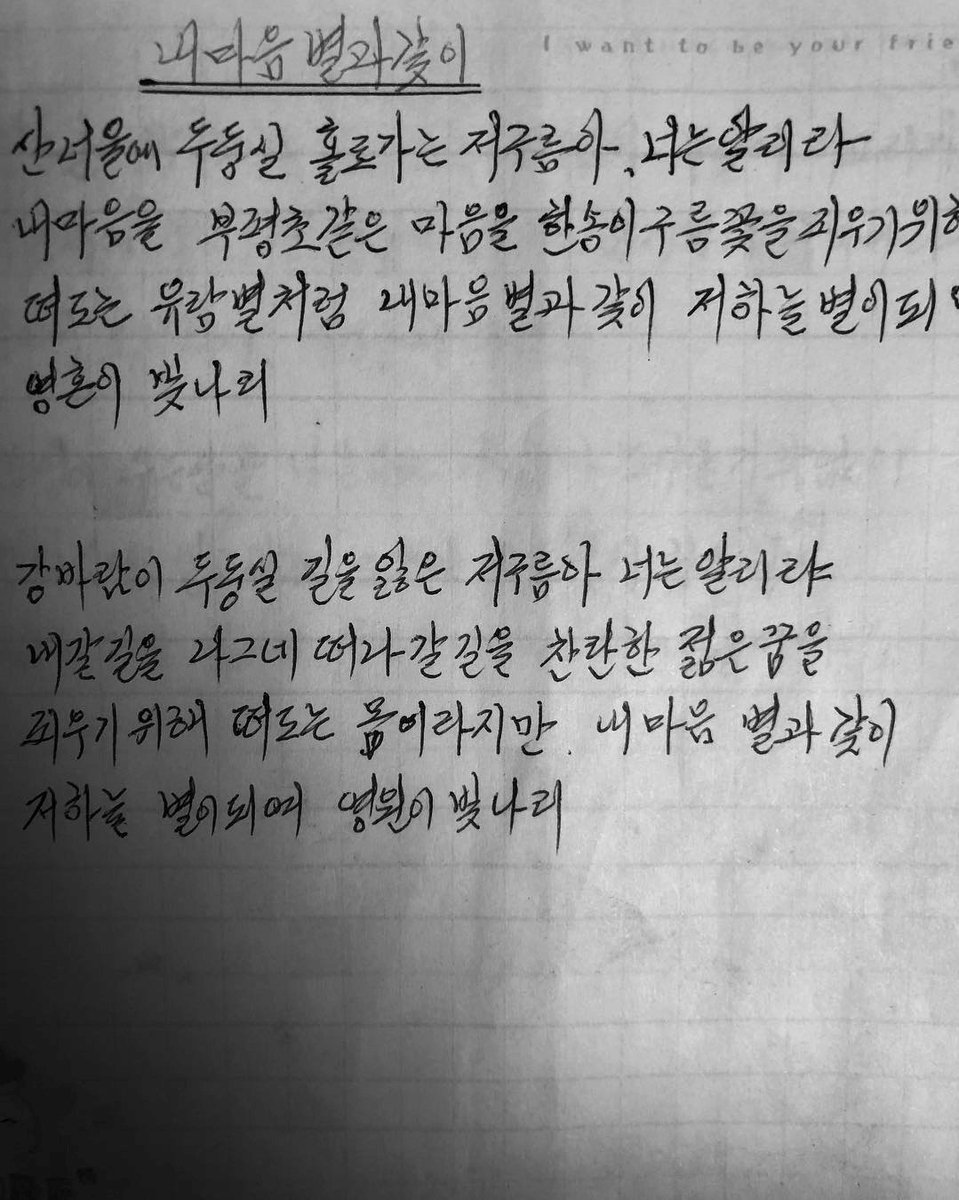 내마음 별과같이
I want to be your frie
산너울에 두둥실 홀로가는 저구름아, 너는알리라
내마음을 부평초같은 마음을 한송이구름꽃을피우기위하
떠도는 유람별처럼 내마음별과같이 저하늘별이되
영혼이 빛나리
강바람이 두둥실 길을잃은 저구름아 너는알리라
내갈길을 나그네 떠나갈길을 찬란한 젊은꿈을
피우기위해 떠도는 몸이라지만. 내마음 별과같이
저하늘 별이되여 영원이빛나리